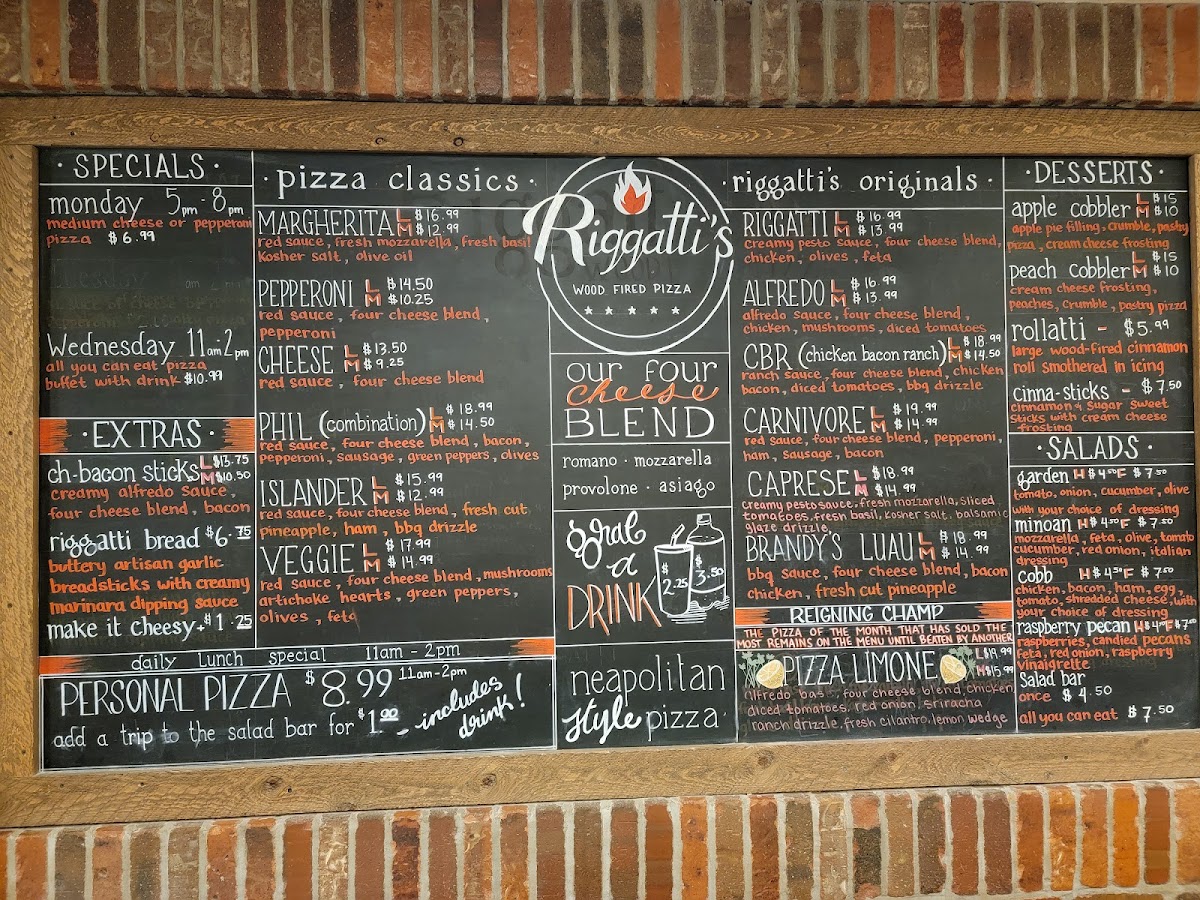 · SPECIALS ·
monday 5pm-8pm
medium cheese or pepperoni
pizza $6.99
Wednesday 11am-2pm
all you can eat pizza
buffet with drink $10.99
· EXTRAS ·
ch-bacon sticks L $13.75
M $10.50
creamy alfredo sauce,
four cheese blend, bacon
riggatti bread $6.75
buttery artisan garlic
breadsticks with creamy
marinara dipping sauce
make it cheesy +$1.25
daily Lunch special 11am-2pm
PERSONAL PIZZA $8.99 11am-2pm
add a trip to the salad bar for $1.00
-includes
drink!
· pizza classics ·
MARGHERITA L $16.99
M $12.99
red sauce, fresh mozzarella, fresh basil
Kosher salt, olive oil
PEPPERONI L $14.50
M $10.25
red sauce, four cheese blend,
pepperoni
CHEESE L $13.50
M $9.25
red sauce, four cheese blend
PHIL (combination) L $18.99
M $14.50
red sauce, four cheese blend, bacon,
pepperoni, sausage, green peppers, olives
ISLANDER L $15.99
M $12.99
red sauce, four cheese blend, fresh cut
pineapple, ham, bbq drizzle
VEGGIE L $17.99
M $14.99
red sauce, four cheese blend, mushrooms
artichoke hearts, green peppers,
olives, feta
Riggatti's
WOOD FIRED PIZZA
our four
cheese
BLEND
romano · mozzarella
provolone · asiago
grab
a
DRINK
$2.25
$3.50
neapolitan
style pizza
· riggatti's originals ·
RIGGATTI L $16.99
M $13.99
creamy pesto sauce, four cheese blend,
chicken, olives, feta
ALFREDO L $16.99
M $13.99
alfredo sauce, four cheese blend,
chicken, mushrooms, diced tomatoes
CBR (chicken bacon ranch) L $18.99
M $14.50
ranch sauce, four cheese blend, chicken
bacon, diced tomatoes, bbq drizzle
CARNIVORE L $19.99
M $14.99
red sauce, four cheese blend, pepperoni,
ham, sausage, bacon
CAPRESE L $18.99
M $14.99
creamy pesto sauce, fresh mozzarella, sliced
tomatoes, fresh basil, kosher salt, balsamic
glaze drizzle
BRANDY'S LUAU L $18.99
M $14.99
bbq sauce, four cheese blend, bacon
chicken, fresh cut pineapple
REIGNING CHAMP
THE PIZZA OF THE MONTH THAT HAS SOLD THE
MOST REMAINS ON THE MENU UNTIL BEATEN BY ANOTHER
PIZZA LIMONE L $19.99
M $15.99
alfredo base, four cheese blend, chicken
diced tomatoes, red onion, sriracha
ranch drizzle, fresh cilantro, lemon wedge
· DESSERTS ·
apple cobbler L $15
M $10
apple pie filling, crumble, pastry
pizza, cream cheese frosting
peach cobbler L $15
M $10
cream cheese frosting,
peaches, crumble, pastry pizza
rollatti - $5.99
large wood-fired cinnamon
roll smothered in icing
cinna-sticks - $7.50
cinnamon & sugar sweet
sticks with cream cheese
frosting
· SALADS ·
garden H $4.50 F $7.50
tomato, onion, cucumber, olive
with your choice of dressing
minoan H $4.50 F $7.50
mozzarella, feta, olive, tomato
cucumber, red onion, italian
dressing
cobb H $4.50 F $7.50
chicken, bacon, ham, egg,
tomato, shredded cheese, with
your choice of dressing
raspberry pecan H $4.50 F $7.50
raspberries, candied pecans
feta, red onion, raspberry
vinaigrette
Salad bar
once $4.50
all you can eat $7.50